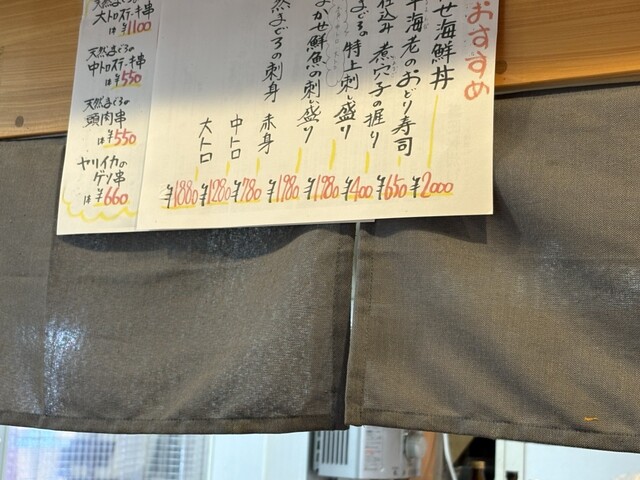 おすすめ
せ海鮮丼 ¥2000
海老のおどり寿司 ¥650
仕込み 煮穴子の握り ¥400
まぐろの特上刺し盛り ¥1980
まかせ鮮魚の刺し盛り ¥1980
然まぐろの刺身 赤身 ¥780
中トロ ¥1280
大トロ ¥1880
天然まぐろの
大トロステーキ串
は¥1100
天然まぐろの
中トロステーキ串
は¥550
天然まぐろの
頭肉串
は¥550
ヤリイカの
ゲソ串
は¥660